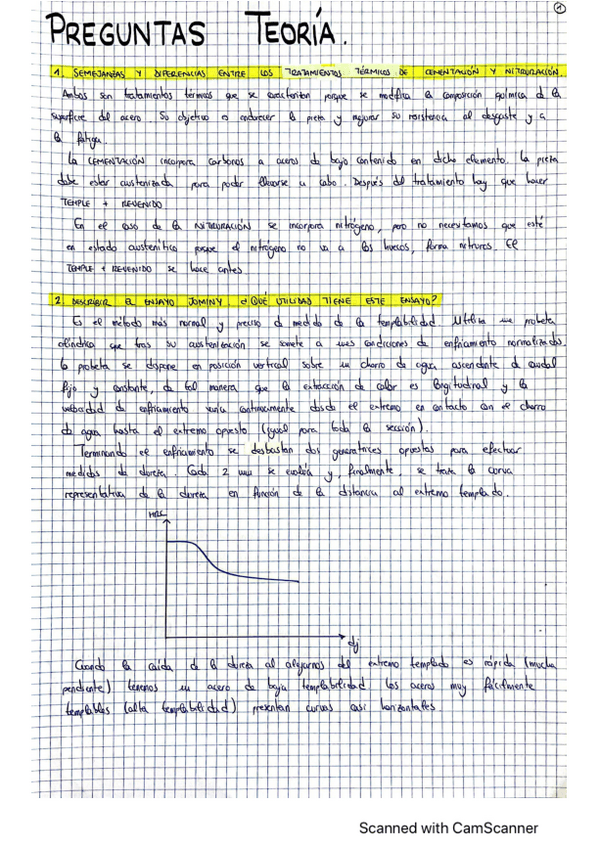 1
PREGUNTAS TEORÍA.
1. SEMEJANZAS Y DIFERENCIAS ENTRE LOS TRATAMIENTOS TÉRMICOS DE CEMENTACIÓN Y NITRURACIÓN.
Ambos son tratamientos térmicos que se caracterizan porque se modifica la composición química de la
superficie del acero. Su objetivo es endurecer la pieza y mejorar su resistencia al desgaste y a
la fatiga.
La CEMENTACIÓN incorpora carbonos a aceros de bajo contenido en dicho elemento. La pieza
debe estar austenizada para poder llevarse a cabo. Después del tratamiento hay que hacer
TEMPLE + REVENIDO
En el caso de la NITRURACIÓN se incorpora nitrógeno, pero no necesitamos que esté
en estado austenítico porque el nitrógeno no va a los huecos, forma nitruros. El
TEMPLE + REVENIDO se hace antes.
2. DESCRIBIR EL ENSAYO JOMINY ¿QUÉ UTILIDAD TIENE ESTE ENSAYO?
Es el método más normal y preciso de medida de la templabilidad. Utiliza una probeta
cilíndrica que tras su austenización se somete a unas condiciones de enfriamiento normalizadas.
La probeta se dispone en posición vertical sobre un chorro de agua ascendente de caudal
fijo y constante, de tal manera que la extracción de calor es longitudinal y la
velocidad de enfriamiento varía continuamente desde el extremo en contacto con el chorro
de agua hasta el extremo opuesto (igual para toda la sección).
Terminando el enfriamiento se desbastan dos generatrices opuestas para efectuar
medidas de dureza. Cada 2 mm se evalúa y, finalmente, se traza la curva
representativa de la dureza en función de la distancia al extremo templado.
HRC
dj
Cuando la caída de la dureza al alejarnos del extremo templado es rápida (mucha
pendiente) tenemos un acero de baja templabilidad. Los aceros muy fácilmente
templables (alta templabilidad) presentan curvas casi horizontales.
Scanned with CamScanner